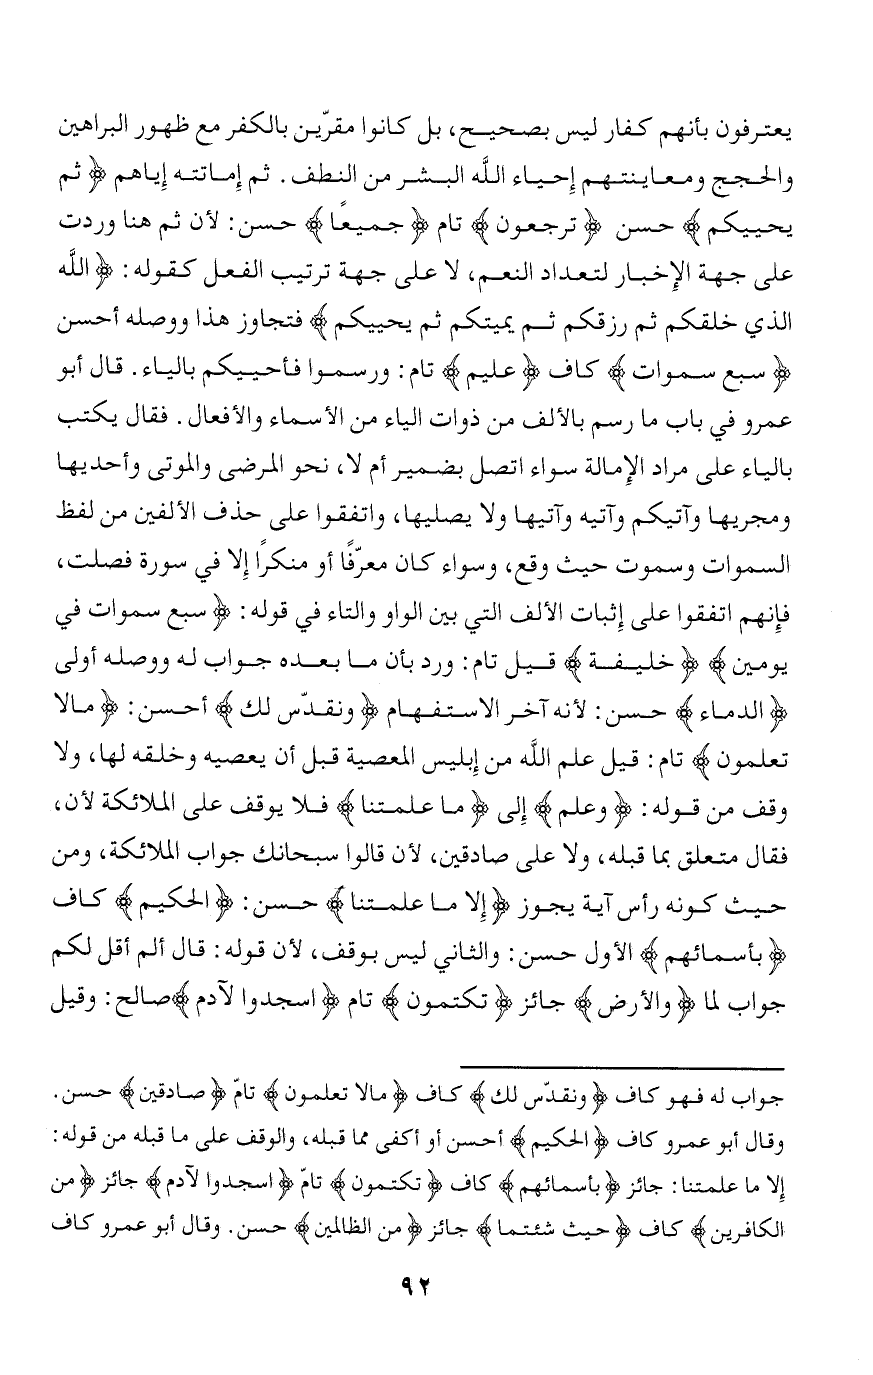 يعترفون بأنهم كفار ليس بصحيح، بل كانوا مقرّين بالكفر مع ظهور البراهين
والحجج ومعاينتهم إحياء اللَّه البشر من النطف. ثم إماتته إياهم ﴿ثم
يحييكم﴾ حسن ﴿ترجعون﴾ تام ﴿جميعًا﴾ حسن: لأن ثم هنا وردت
على جهة الإخبار لتعداد النعم، لا على جهة ترتيب الفعل كقوله: ﴿اللَّه
الذي خلقكم ثم رزقكم ثم يميتكم ثم يحييكم﴾ فتجاوز هذا ووصله أحسن
﴿سبع سموات﴾ كاف ﴿عليم﴾ تام: ورسموا فأحييكم بالياء. قال أبو
عمرو في باب ما رسم بالألف من ذوات الياء من الأسماء والأفعال. فقال يكتب
بالياء على مراد الإمالة سواء اتصل بضمير أم لا، نحو المرضى والموتى وأحديها
ومجريها وآتيكم وآتيه وآتيها ولا يصليها، واتفقوا على حذف الألفين من لفظ
السموات وسموت حيث وقع، وسواء كان معرّفًا أو منكرًا إلا في سورة فصلت،
فإنهم اتفقوا على إثبات الألف التي بين الواو والتاء في قوله: ﴿سبع سموات في
يومين﴾ ﴿خليفة﴾ قيل تام: ورد بأن ما بعده جواب له ووصله أولى
﴿الدماء﴾ حسن: لأنه آخر الاستفهام ﴿ونقدّس لك﴾ أحسن: ﴿مالا
تعلمون﴾ تام: قيل علم اللَّه من إبليس المعصية قبل أن يعصيه وخلقه لها، ولا
وقف من قوله: ﴿وعلم﴾ إلى ﴿ما علمتنا﴾ فلا يوقف على الملائكة لأن،
فقال متعلق بما قبله، ولا على صادقين، لأن قالوا سبحانك جواب الملائكة، ومن
حيث كونه رأس آية يجوز ﴿إلا ما علمتنا﴾ حسن: ﴿الحكيم﴾ كاف
﴿بأسمائهم﴾ الأول حسن: والثاني ليس بوقف، لأن قوله: قال ألم أقل لكم
جواب لما ﴿والأرض﴾ جائز ﴿تكتمون﴾ تام ﴿اسجدوا لآدم﴾صالح: وقيل
جواب له فهو كاف ﴿ونقدّس لك﴾ كاف ﴿مالا تعلمون﴾ تامّ ﴿صادقين﴾ حسن.
وقال أبو عمرو كاف ﴿الحكيم﴾ أحسن أو أكفى مما قبله، والوقف على ما قبله من قوله:
إلا ما علمتنا: جائز ﴿بأسمائهم﴾ كاف ﴿تكتمون﴾ تامّ ﴿اسجدوا لآدم﴾ جائز ﴿من
الكافرين﴾ كاف ﴿حيث شئتما﴾ جائز ﴿من الظالمين﴾ حسن. وقال أبو عمرو كاف
٩٢